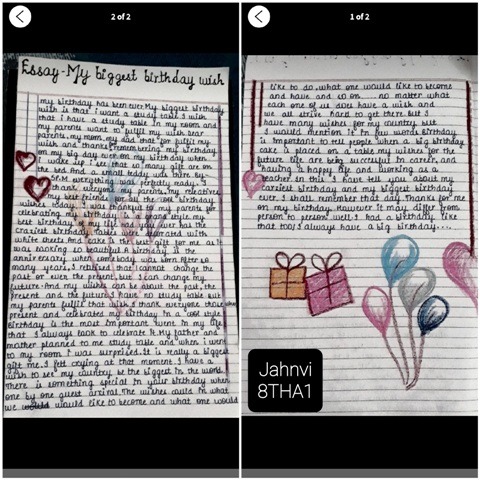 2 of 2
Essay-My biggest birthday wish
my birthday has been ever.My biggest birthday
wish is that i want a study table.I wish
that i have a study table in my room and
my parents want to fulfil my wish. Dear
parents, my mom and dad that for fulfil my
wish and thanks remembering my birthday
on my big day even on my birthday when
i wake up i see that so many gift are on
the bed and a small teddy was there by
5P.M everything was perfectly ready. I
thank everyone my parents, my relatives
my best friends all the cool birthday
wishes today. I was thankful to my parents for
celebrating my birthday in cool style. my
best birthday of life was your ever has the
craziest birthday tables were decorated with
white sheets. And here is the best gift for me as it
was looking so beautiful. A birthday is the
anniversary when somebody was born. After so
many years, i relised that cannot change the
past or even the present, but i can change my
future. And my wishes can be about the past, the
present and the future. I have no study table but
my parents fulfil this wish I thank everyone those who
present and celebrates my birthday in a cool style
Birthday is the most important went in my life
that I always look to celebrate it. My father and
mother planned to me study table and when i went
to my room I was surprised. It is really a biggest
gift me. I felt crying at that moment. I have a
wish to see my country be the biggest in the world.
There is something special in your birthday when
one by one guest arrival. The wishes could in what
we would would like to become and what one would
1 of 2
like to do, what one would like to become
and have and so on..... no matter what
each one of us does have a wish and
we all strive hard to get there. But i
have many wishes for my country, but
I would mention it in few words. Birthday
is important to tell people when a big birthday
cake is placed on a table my wishes for the
future life are being successful in career, and
having a happy life and working as a
teacher in this. I have tell you about my
craziest birthday and my biggest birthday
ever. I shall remember that day. Thanks for me
on my birthday. However it may differ from
person to person, well. I had a birthday like
that too; I always have a big birthday....
Jahnvi
8THA1